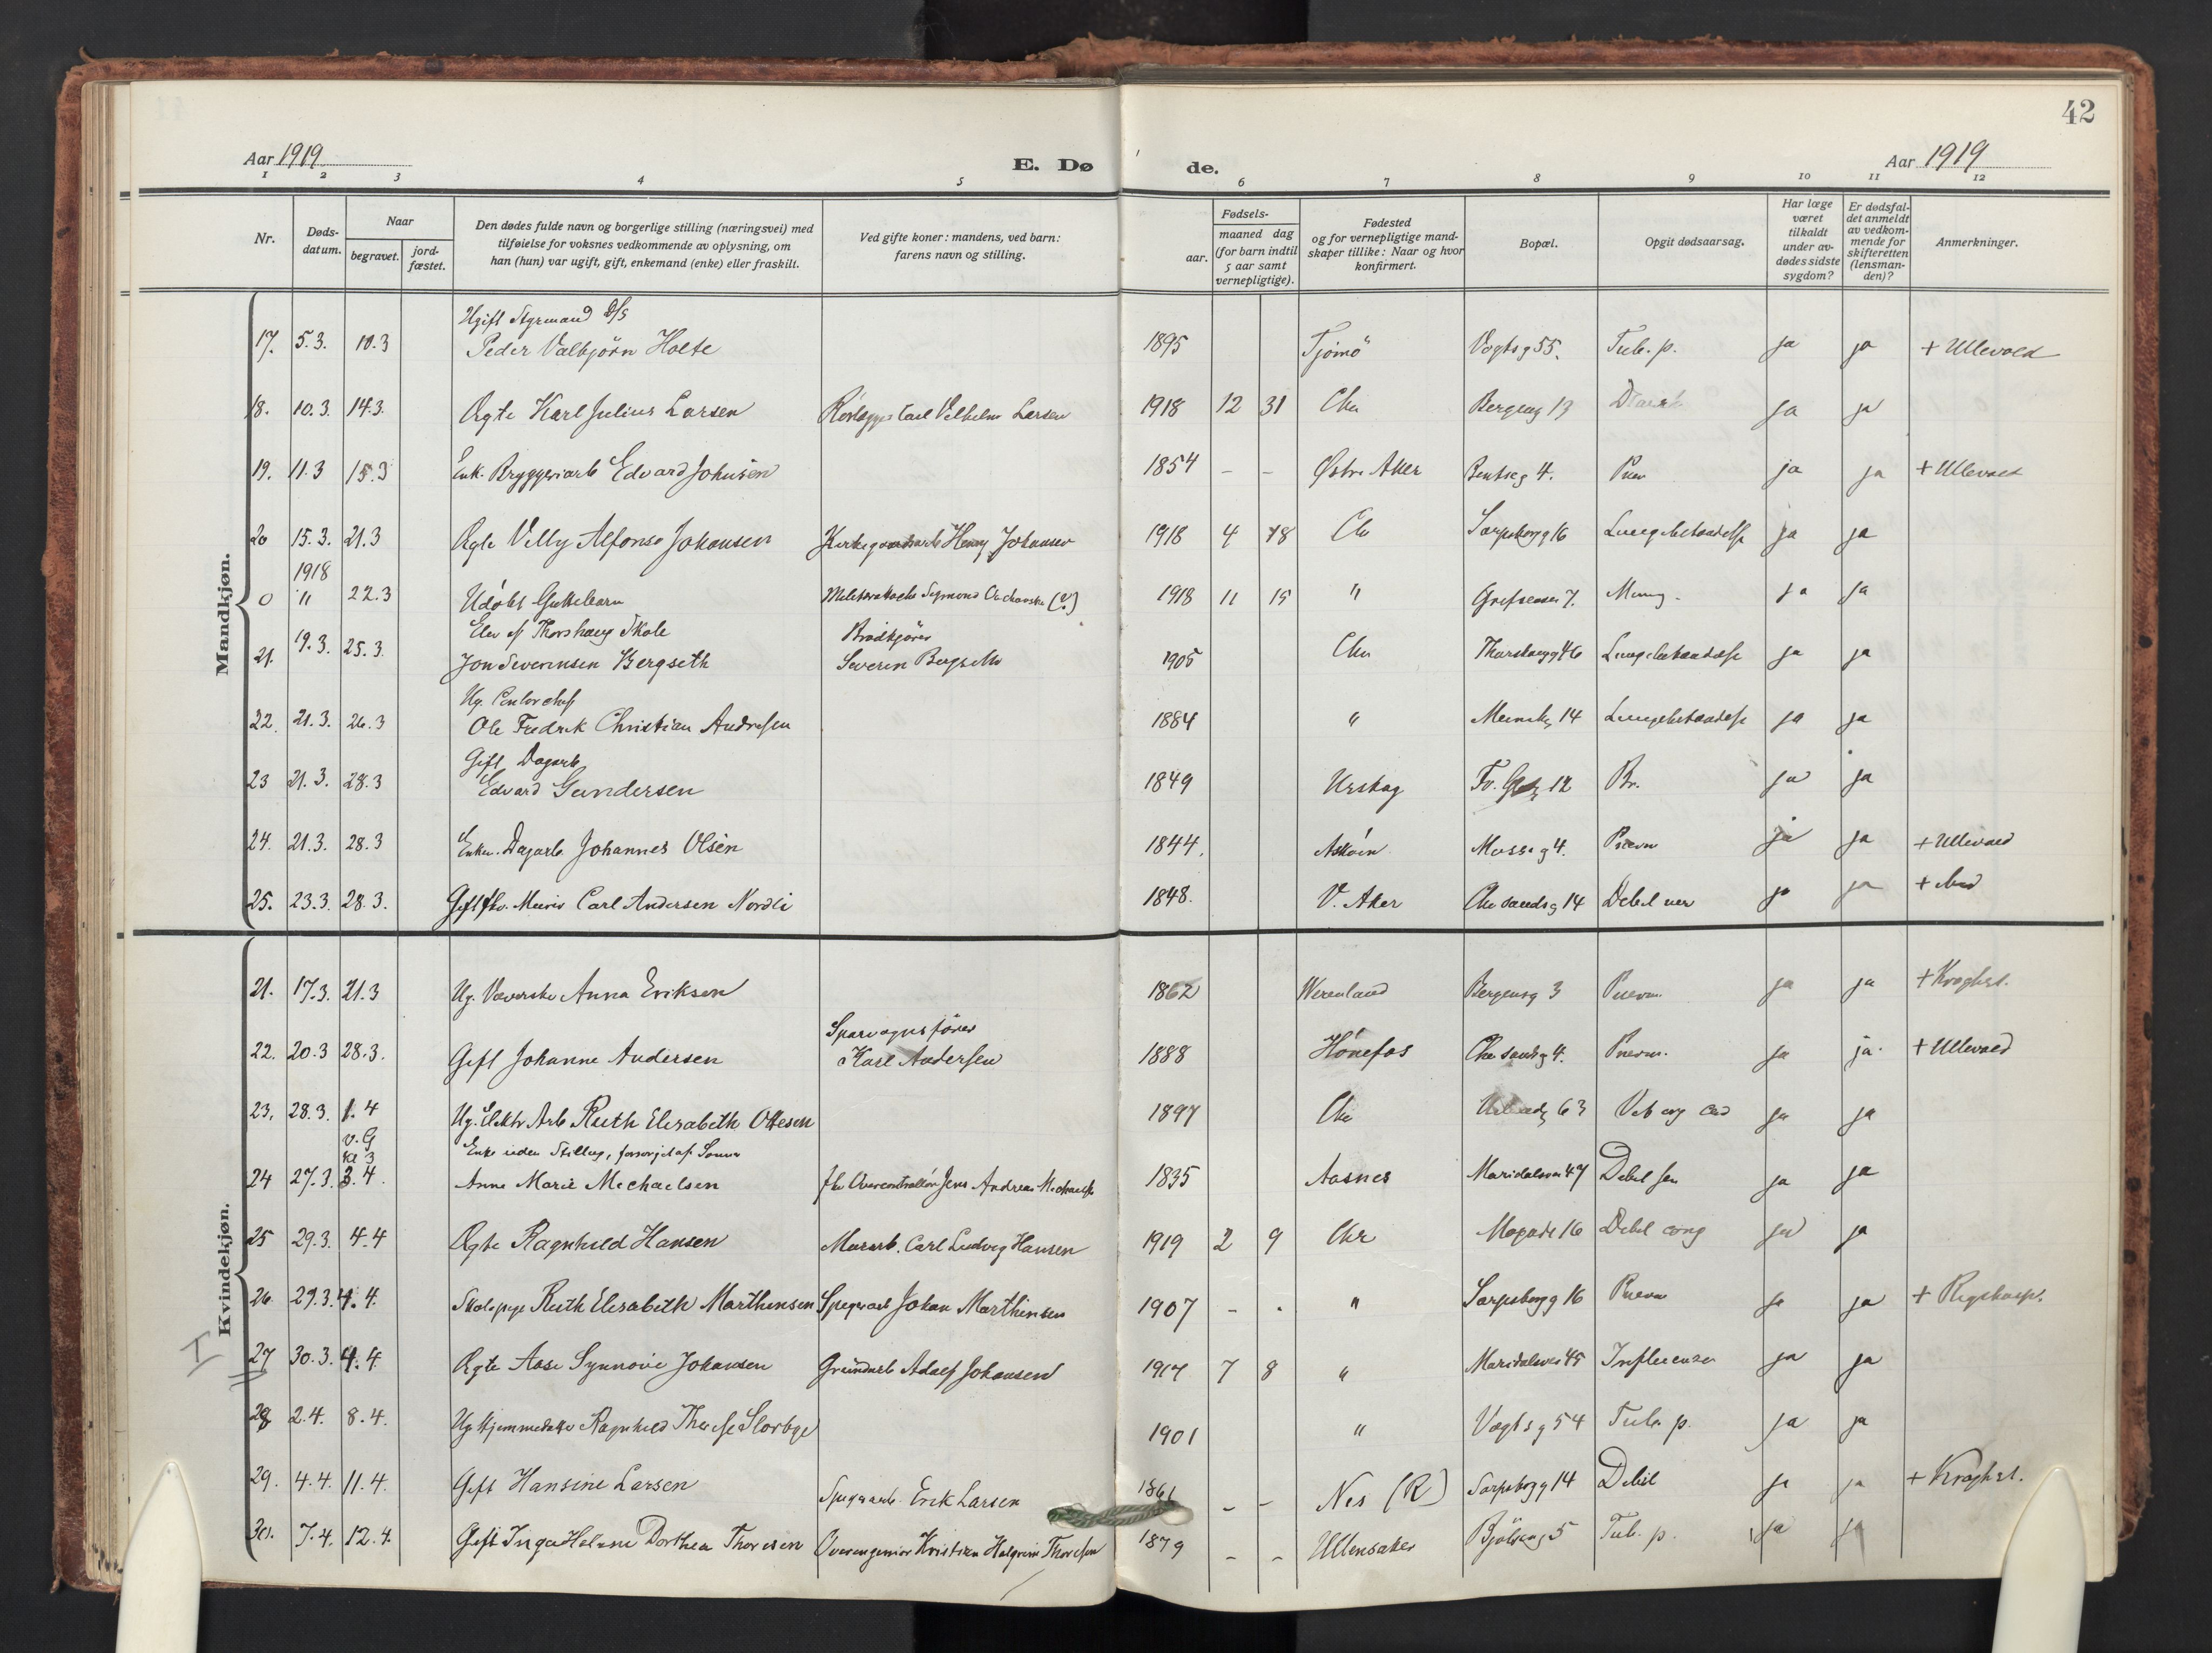 42
Aar 1919
E. Dø
de.
Aar 1919
1 2 3 4 5 6 7 8 9 10 11 12
Nr.
Døds-
datum.
Naar
begravet.
jord-
fæstet.
Den dødes fulde navn og borgerlige stilling (næringsvei) med
tilføielse for voksnes vedkommende av oplysning, om
han (hun) var ugift, gift, enkemand (enke) eller fraskilt.
Ved gifte koner: mandens, ved barn:
farens navn og stilling.
Fødsels-
aar.
maaned dag
(for barn indtil
5 aar samt
vernepligtige).
Fødested
og for vernepligtige mand-
skaper tillike: Naar og hvor
konfirmert.
Bopæl.
Opgit dødsaarsag.
Har læge
været
tilkaldt
under av-
dødes sidste
sygdom?
Er dødsfal-
det anmeldt
av vedkom-
mende for
skifteretten
(lensman-
den)?
Anmerkninger.
Mandkjøn.
Ugift Styrmand D/S
17. 5.3. 10.3 Peder Valbjörn Holte 1895 Tjömö Vogtsg 55. Tub. p. ja ja + Ullevold
18. 10.3. 14.3. Ægte Karl Julius Larsen Carl Vilhelm Larsen 1918 12 31 Chr Bergensg 13 ja ja
19. 11.3 15.3 Enk. Bryggeriarb Edvard Johnsen 1854 - - Østre Aker Bentseg 4. Pnev ja ja + Ullevold
20 15.3. 21.3 Ægte Villy Alfonso Johansen Henry Johansen 1918 4 18 Chr Sarpsborgg 16 Lungebetændelse ja ja
1918
0 " 22.3 Udöbt Guttebarn Symond (?) 1918 11 15 " Grefsenv 7. ja ja
Elev af Thorshaug Skole Brødkjører
21. 19.3. 25.3. Jon Severinsen Bergseth Severin Bergseth 1905 Chr Thorshaugg 46 Lungebetændelse ja ja
Ug. Contorchef
22. 21.3. 26.3 Ole Fredrik Christian Andresen 1884 " 14 Lungebetændelse ja ja
Gift Dagarb.
23 21.3. 28.3 Edvard Gundersen 1849 Urskog 12 Br. ja ja
24. 21.3. 28.3 Enkem. Dagarb. Johannes Olsen 1844. Mosseg 4. Pnevm ja ja + Ullevold
25. 23.3. 28.3. Gift fhv. Carl Andersen Nordli 1848. V. Aker Chr sandsg 14 Debil ja ja +
Kvindekjøn.
21. 17.3. 21.3 Ug. Væverske Anna Eriksen 1862 Wermland Bergensg 3 Pnevm. ja ja + Kroghst.
Sporvognsfører
22. 20.3 28.3. Gift Johanne Andersen Karl Andersen 1888 Hönefos Chr sandsg 4. Pnevm. ja ja + Ullevold
23. 28.3. 1.4 Ug. Elektr Arb Ruth Elisabeth Ottesen 1897 Chr 63 Vit org Cord ja ja
v. G
kl 3 Enke uden Stilling, forsørget af Sønner
24 27.3. 3.4. Anne Marie Michaelsen fhv Overcontrollør Jens Andreas Michaelsen 1835 Aasnes Maridalsvei 47 Debil sen ja ja
25 29.3. 4.4 Ægte Ragnhild Hansen Murarb. Carl Ludvig Hansen 1919 2 9 Chr 16 Debil cong ja ja
26 29.3. 4.4. Skolepige Ruth Elisabeth Marthinsen Johan Marthinsen 1907 - - " Sarpsborgg 16 Pnevm ja ja + Rigshosp.
I
27 30.3. 4.4. Ægte Aase Synnove Johansen Adolf Johansen 1917 7 8 " Maridalsvei 45 Influenza ja ja
28 2.4. 8.4. Ug Hjemmedatter Ragnhild Therese Slorbye 1901 " Vogtsg 54 Tub. p. ja ja
29. 4.4. 11.4. Gift Hansine Larsen Erik Larsen 1861 - - Nes (R) Sarpsborgg 14 Debil ja ja + Kroghst.
30. 7.4. 12.4. Gift Inga Helene Dorthea Thoresen Overingeniør Kristian Thoresen 1879 - - Ullensaker Bjölseng 5 Tub. p. ja ja